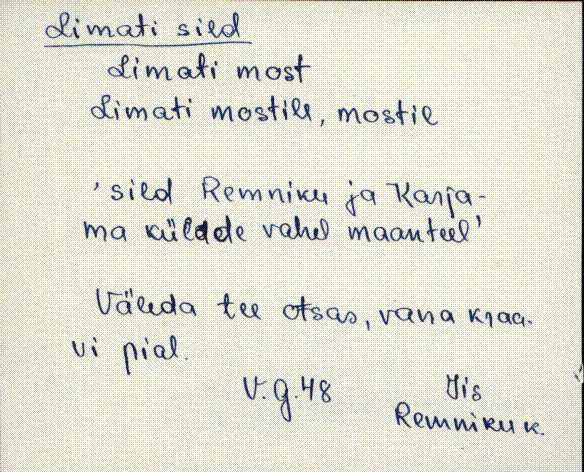 Limati sild
Limati most
Limati mostile, mostil
'sild Remniku ja Karja-
ma külade vahel maanteel'
Väleda tee otsas, vana kraa-
vi pial.
V.g.48 Iis
Remniku k.